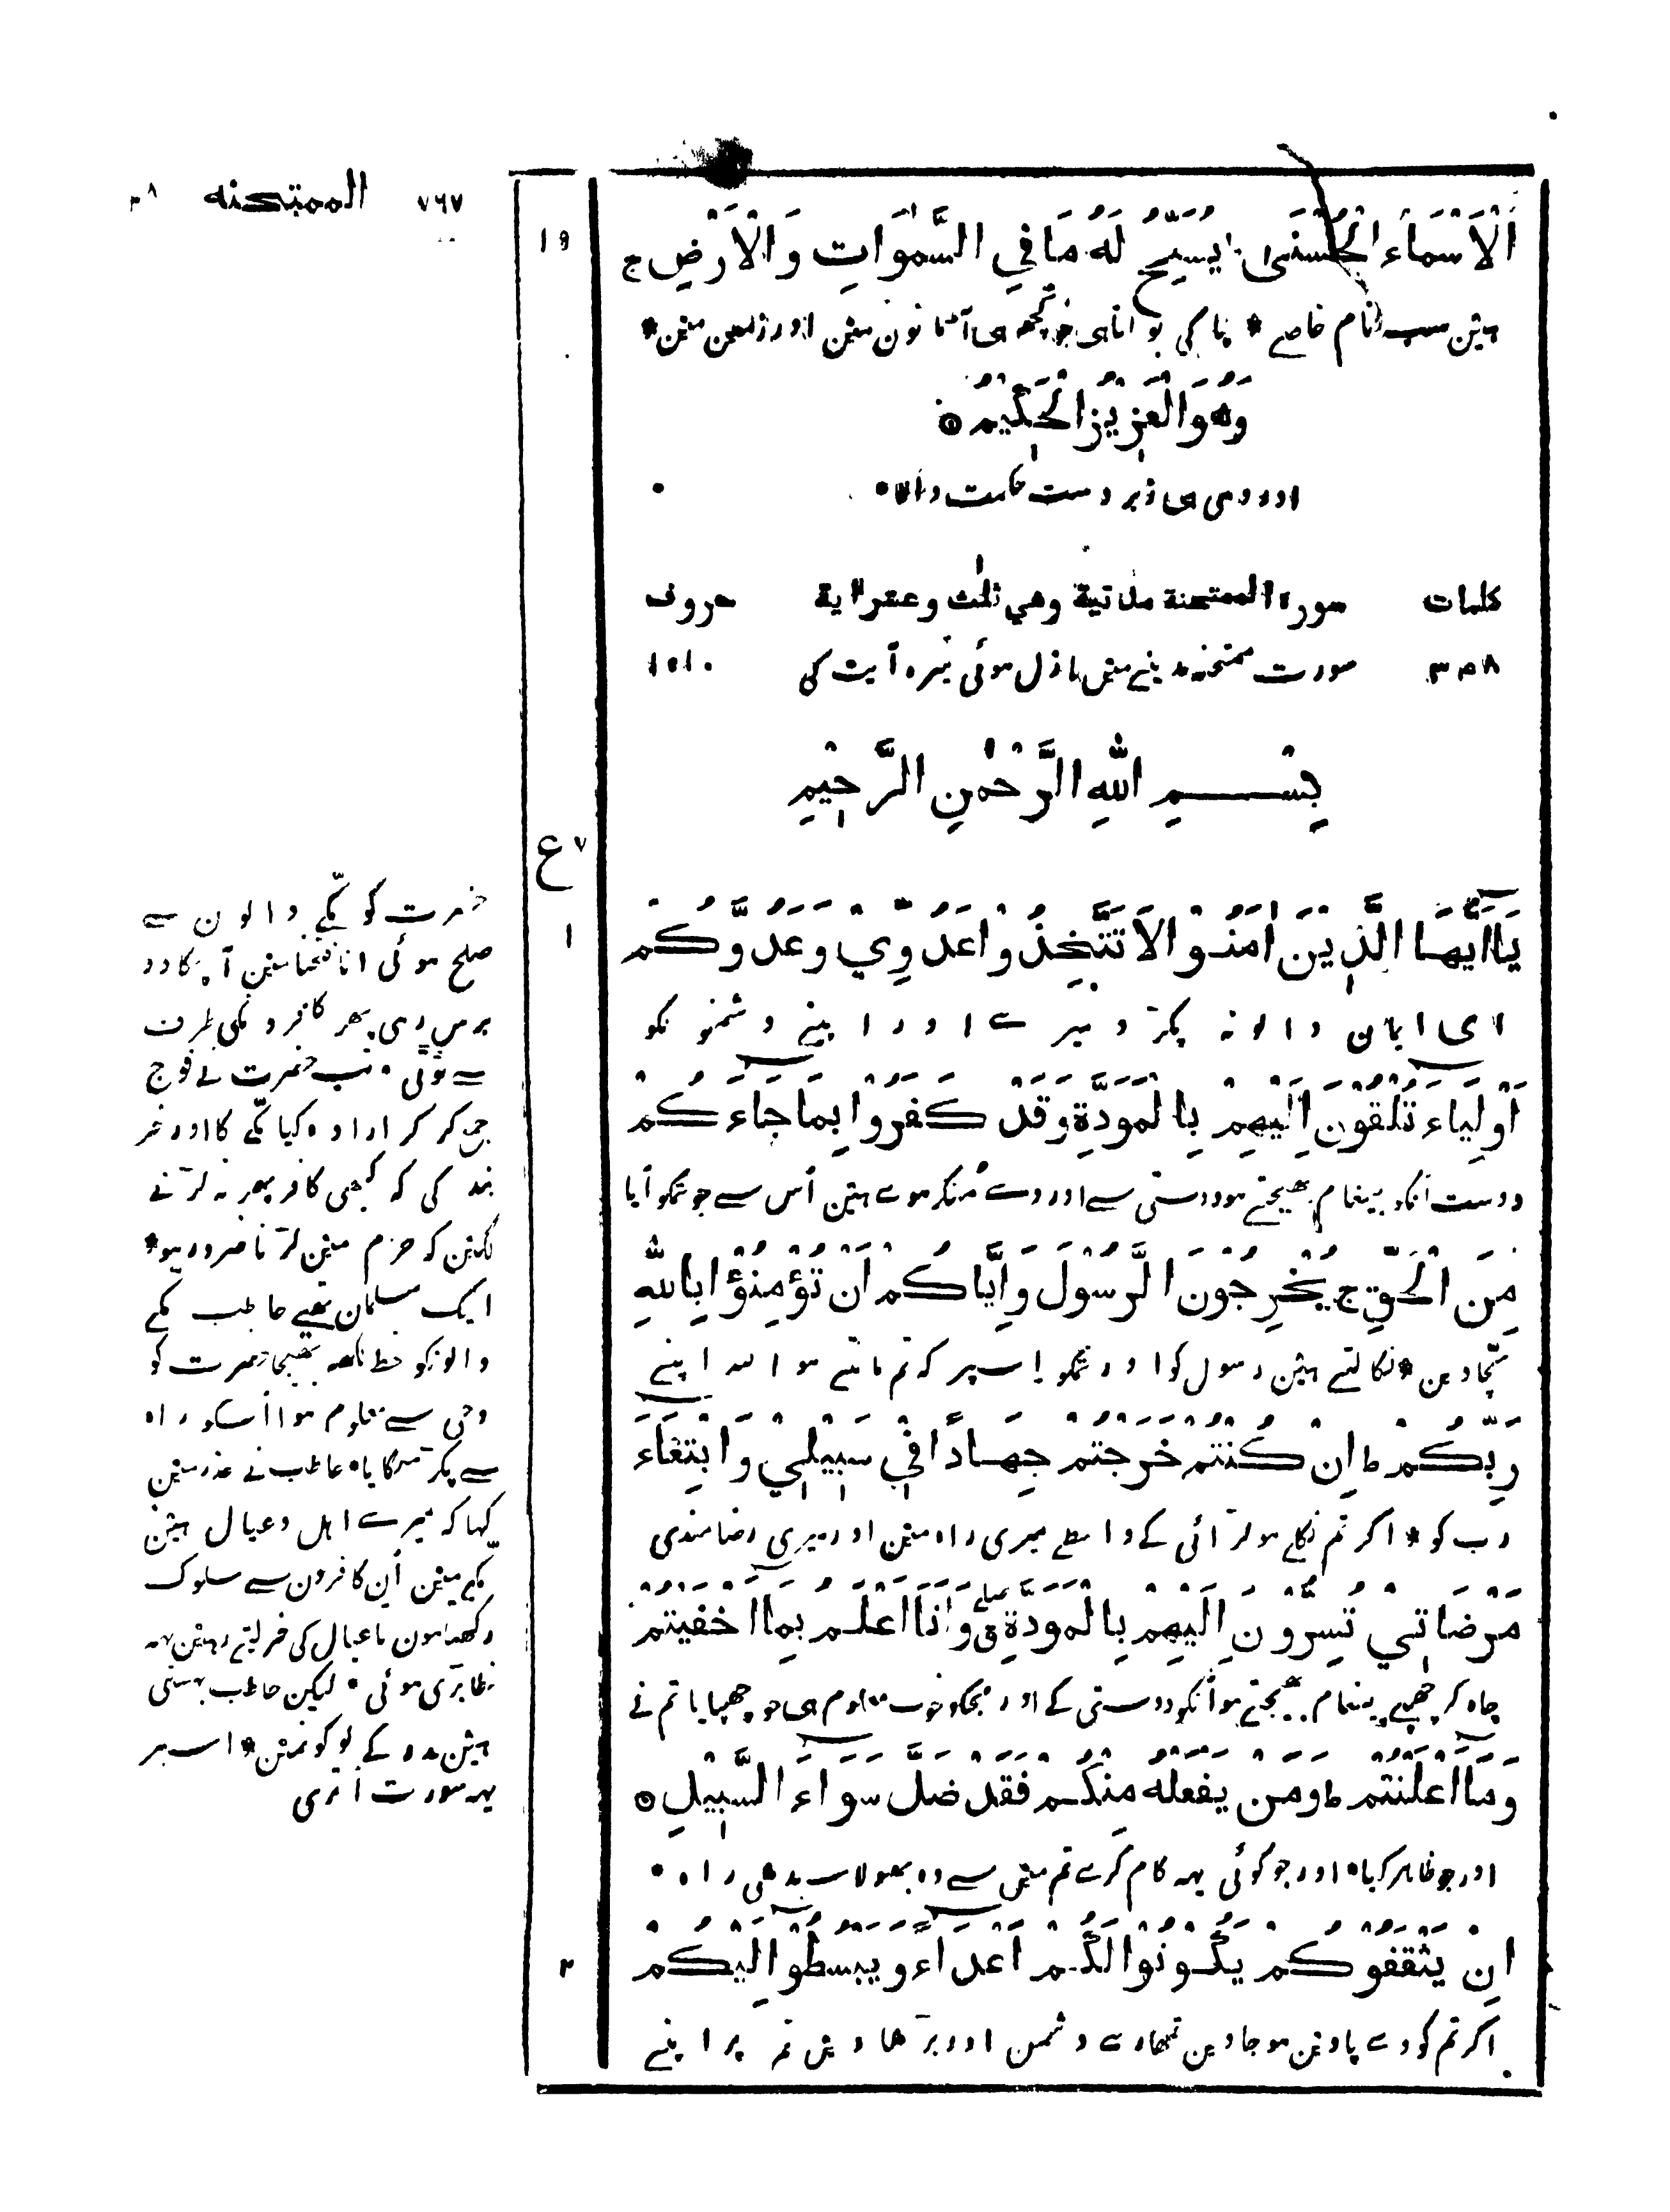 ٧٦٧ الممتحنه
١٩
اَلْاَسْمَاءُ الْحُسْنٰى يُسَبِّحُ لَهُ مَا فِي السَّمٰوَاتِ وَالْاَرْضِ ج
هین سب نام خاصے * پاکی بولتا هی جو کچھ هی آسمانون مین اور زمین مین *
وَهُوَ الْعَزِيْزُ الْحَكِيْمُ ۝
اور وهی هی زبردست حکمت والا *
کلمات سورة الممتحنة مدنية وهي ثلث وعشر اية حروف
٣٥٨ سورت ممتحنه مدینے مین نازل هوئی تیره آیت کی ١٥١٠
بِسْمِ اللّٰهِ الرَّحْمٰنِ الرَّحِيْمِ
ع ٧
١
يَا اَيُّهَا الَّذِيْنَ اٰمَنُوْا لَا تَتَّخِذُوْا عَدُوِّيْ وَعَدُوَّكُمْ
ای ایمان والو نه پکڑو میرے اور اپنے دشمنونکو
اَوْلِيَاءَ تُلْقُوْنَ اِلَيْهِمْ بِالْمَوَدَّةِ وَقَدْ كَفَرُوْا بِمَا جَاءَكُمْ
دوست اُنکو پیغام بھیجتے هو دوستی سے اور وے مُنکر هوے هین اُس سے جو تمکو آیا
مِنَ الْحَقِّ ج يُخْرِجُوْنَ الرَّسُوْلَ وَاِيَّاكُمْ اَنْ تُؤْمِنُوْا بِاللّٰهِ
سچا دین * نکالتے هین رسول کو اور تمکو اِسپر که تم مانتے هو الله اپنے
رَبِّكُمْ ط اِنْ كُنْتُمْ خَرَجْتُمْ جِهَادًا فِيْ سَبِيْلِيْ وَابْتِغَاءَ
رب کو * اگر تم نکلے هو لڑائی کے واسطے میری راه مین اور میری رضامندی
مَرْضَاتِيْ تُسِرُّوْنَ اِلَيْهِمْ بِالْمَوَدَّةِ ق وَاَنَا اَعْلَمُ بِمَا اَخْفَيْتُمْ
چاه کر چھپے پیغام بھیجتے هو اُنکو دوستی کے اور مجکو خوب معلوم هی جو چھپایا تم نے
وَمَا اَعْلَنْتُمْ ط وَمَنْ يَفْعَلْهُ مِنْكُمْ فَقَدْ ضَلَّ سَوَاءَ السَّبِيْلِ ۝
اور جو ظاهر کیا * اور جو کوئی یهه کام کرے تم مین سے وه بھولا سیدھی راه *
٢
اِنْ يَثْقَفُوْكُمْ يَكُوْنُوْا لَكُمْ اَعْدَاءً وَيَبْسُطُوْا اِلَيْكُمْ
اگر تم کو وے پاوین هو جاوین تمهارے دشمن اور بڑھاوین تم پر اپنے
حضرت کو مکّے والون سے
صلح هوئی انا فتحنا مین آچکا دو
برس رهی پھر کافرونکی طرف
سے ٹوٹی * تب حضرت نے فوج
جمع کر کر اراده کیا مکّے کا اور خبر
بند کی که کبھی کافر پھر نه لڑنے
لگین که حرم مین لڑنا ضرور هو *
ایک مسلمان تھے حاطب مکے
والونکو خط لکھه بھیجا حضرت کو
وحی سے معلوم هوا اُسکو راه
سے پکڑ منگایا * حاطب نے عذر مین
کہا که میرے اهل و عیال هین
مکے مین اُن کافرون سے سلوک
رکھتا هون تا عیال کی خبر لیتے رهین یهه
خطا بڑی هوئی * لیکن حاطب بهشتی
هین بدر کے لوگون مین * اسپر
یهه سورت اُتری